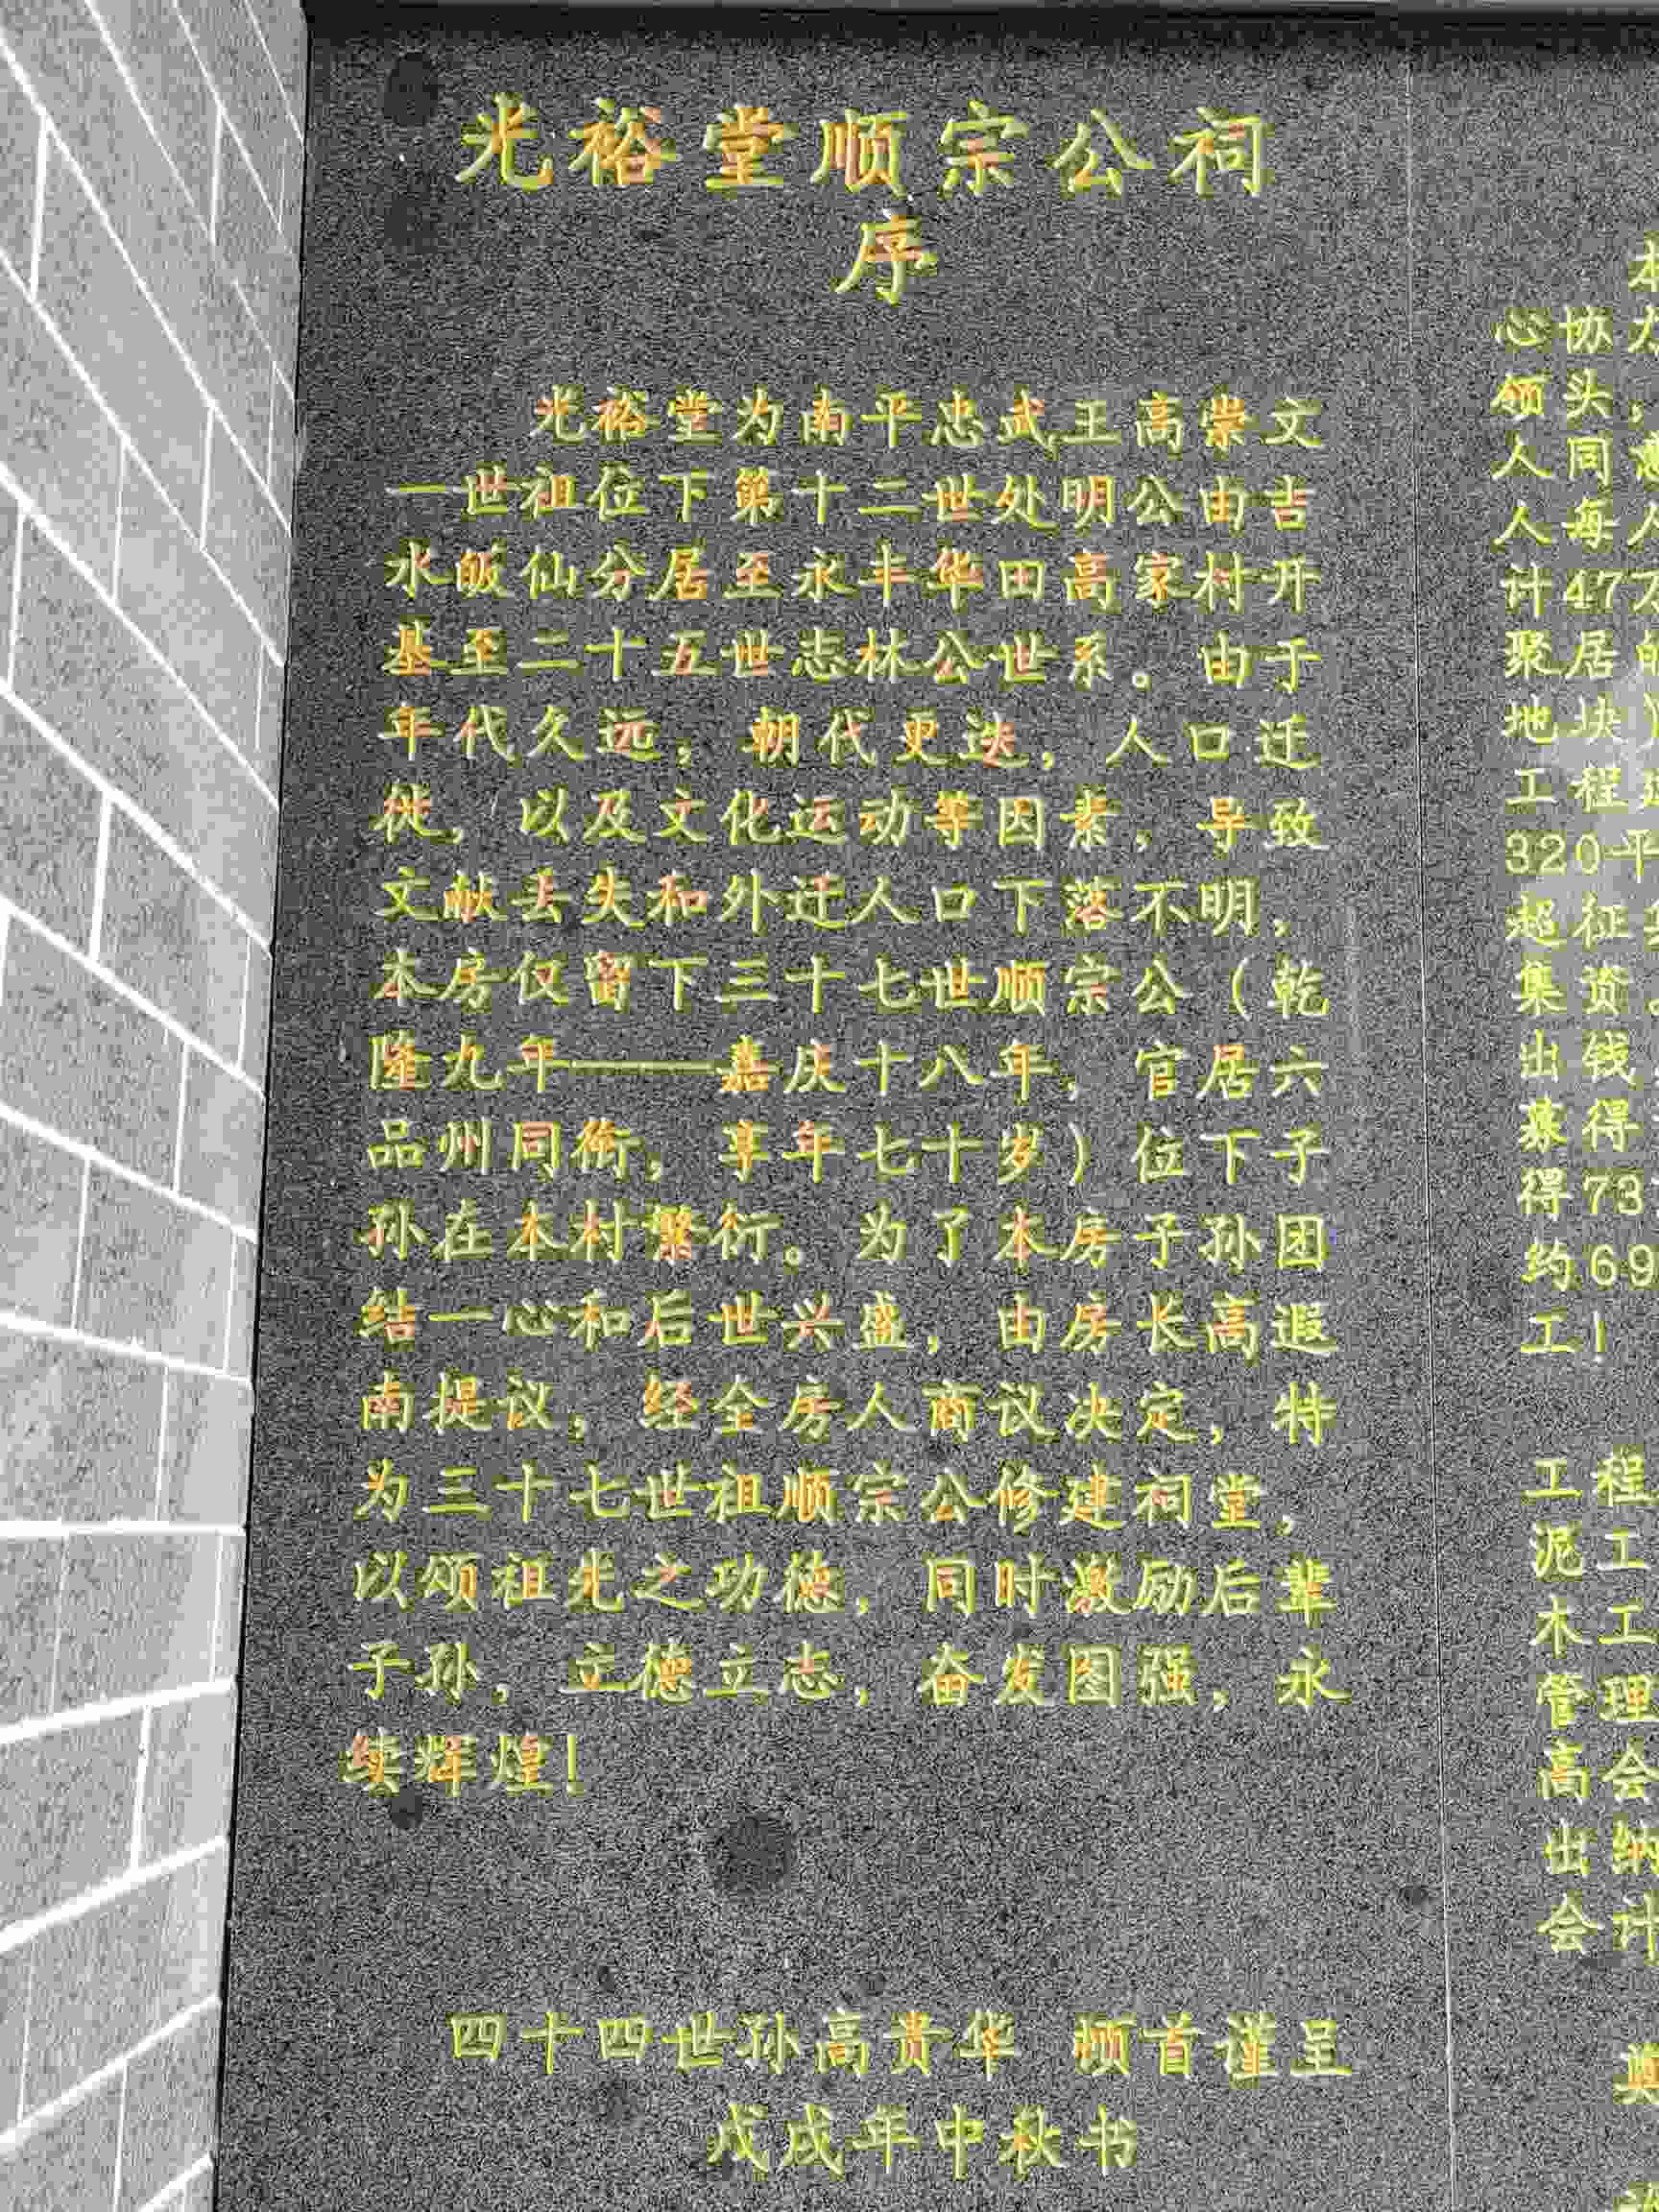 光裕堂顺宗公祠
序
光裕堂为南平忠武王高崇文
一世祖位下第十二世处明公由吉
水皈仙分居至永丰华田高家村开
基至二十五世志林公世系。由于
年代久远，朝代更迭，人口迁
徙，以及文化运动等因素，导致
文献丢失和外迁人口下落不明，
本房仅留下三十七世顺宗公（乾
隆九年——嘉庆十八年，官居六
品州同衔，享年七十岁）位下子
孙在本村繁衍。为了本房子孙团
结一心和后世兴盛，由房长高遐
南提议，经全房人商议决定，特
为三十七世祖顺宗公修建祠堂，
以颂祖先之功德，同时激励后辈
子孙，立德立志，奋发图强，永
续辉煌！
四十四世孙高贵华 顿首谨呈
戊戌年中秋书
本
心协力
领头，
人同意
人每人
计47万
聚居的
地块）
工程
320平
超征
集资。
出钱
募得
得73
约69
工！
工程
泥工
木工
管理
高会
出纳
会计